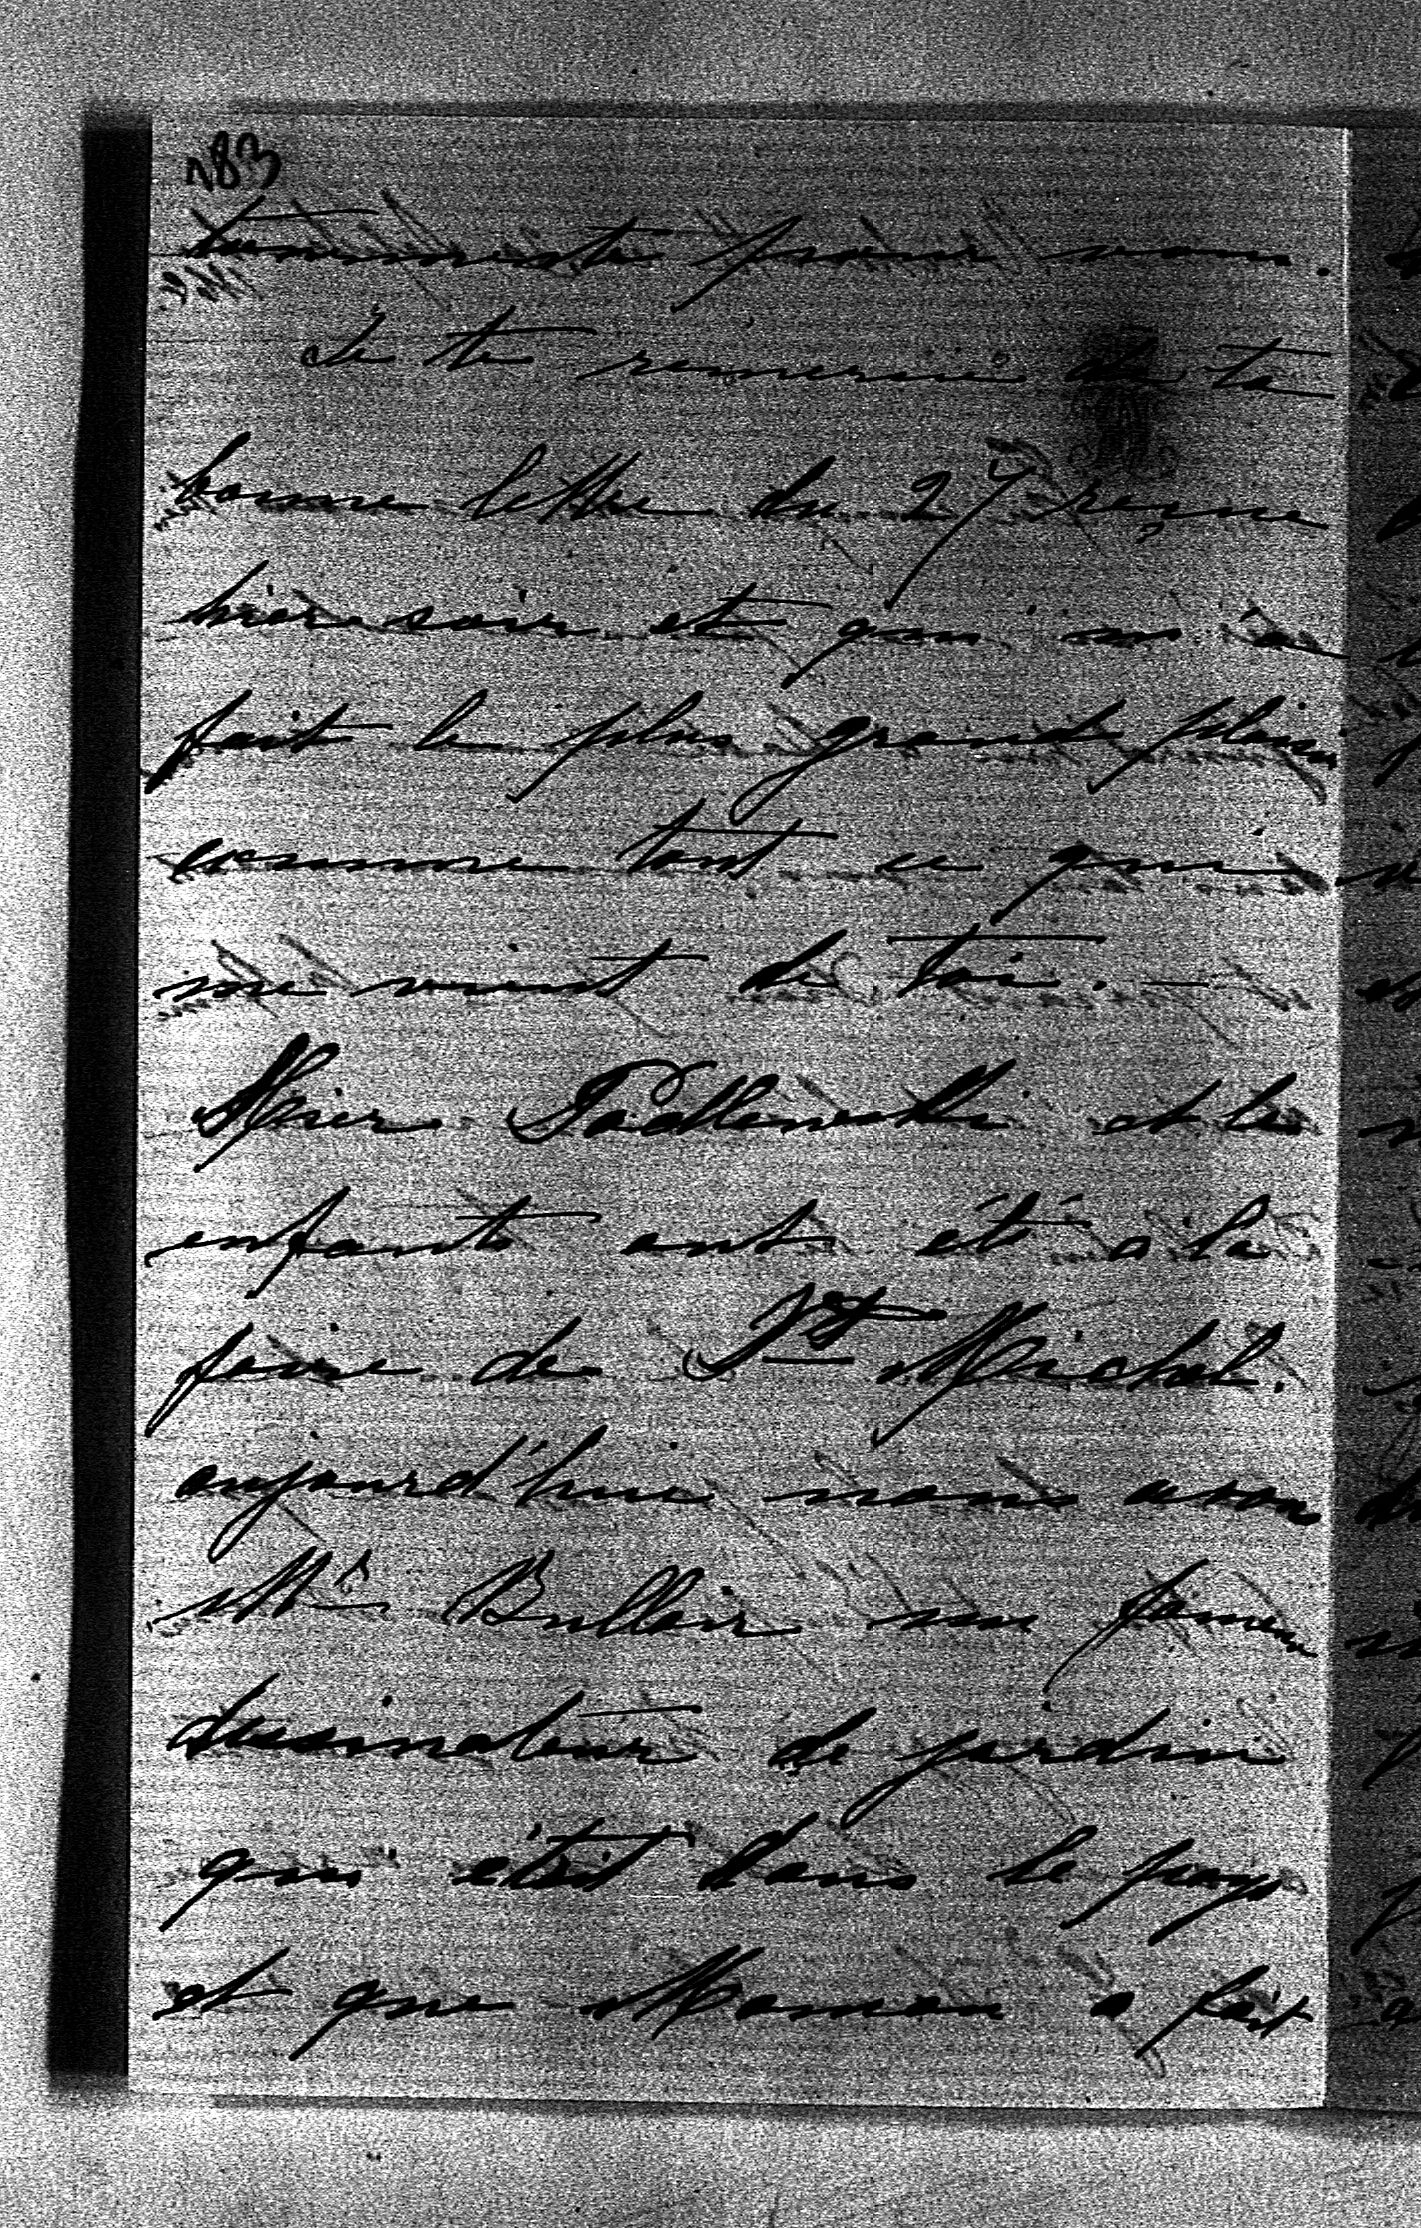 183
pour vous.
Je te remercie de ta
bonne lettre du 27 reçue
hier soir et qui m'a
fait le plus grand plaisir
comme tout ce qui
me vient de toi. —
Hier Podlewski et les
enfants ont été à la
foire de St Michel.
aujourd'hui nous avons
Mr un fameux
dessinateur de jardin
qui était dans le pays
et que Maman a fait